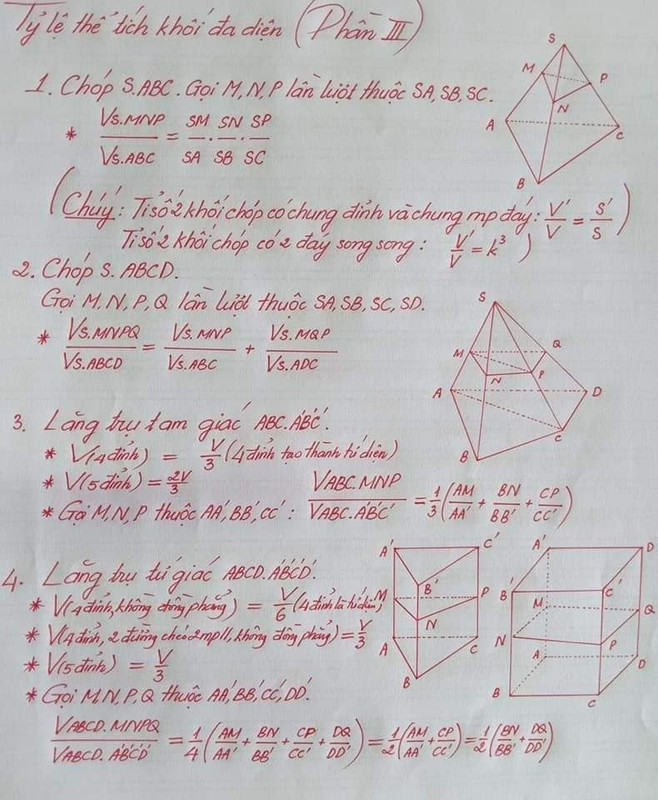 Tỷ lệ thể tích khối đa diện (Phần III)
1. Chóp S.ABC. Gọi M, N, P lần lượt thuộc SA, SB, SC.
* V_S.MNP / V_S.ABC = SM/SA . SN/SB . SP/SC
(Chú ý: Tỉ số 2 khối chóp có chung đỉnh và chung mp đáy: V'/V = S'/S
Tỉ số 2 khối chóp có 2 đáy song song: V'/V = k³ )
2. Chóp S.ABCD.
Gọi M, N, P, Q lần lượt thuộc SA, SB, SC, SD.
* V_S.MNPQ / V_S.ABCD = V_S.MNP / V_S.ABC + V_S.MQP / V_S.ADC
3. Lăng trụ tam giác ABC.A'B'C'.
* V(4 đỉnh) = V/3 (4 đỉnh tạo thành tứ diện)
* V(5 đỉnh) = 2V/3
* Gọi M, N, P thuộc AA', BB', CC': V_ABC.MNP / V_ABC.A'B'C' = 1/3 (AM/AA' + BN/BB' + CP/CC')
4. Lăng trụ tứ giác ABCD.A'B'C'D'.
* V(4 đỉnh, không đồng phẳng) = V/6 (4 đỉnh là tứ diện)
* V(4 đỉnh, 2 đường chéo 2mp//, không đồng phẳng) = V/3
* V(5 đỉnh) = V/3
* Gọi M, N, P, Q thuộc AA', BB', CC', DD'.
V_ABCD.MNPQ / V_ABCD.A'B'C'D' = 1/4 (AM/AA' + BN/BB' + CP/CC' + DQ/DD') = 1/2 (AM/AA' + CP/CC') = 1/2 (BN/BB' + DQ/DD')
S
M
P
N
A
C
B
S
M
Q
N
P
A
D
C
B
A'
C'
B'
M
P
N
A
C
B
A'
D
B'
C'
M
Q
N
P
A
D
B
C